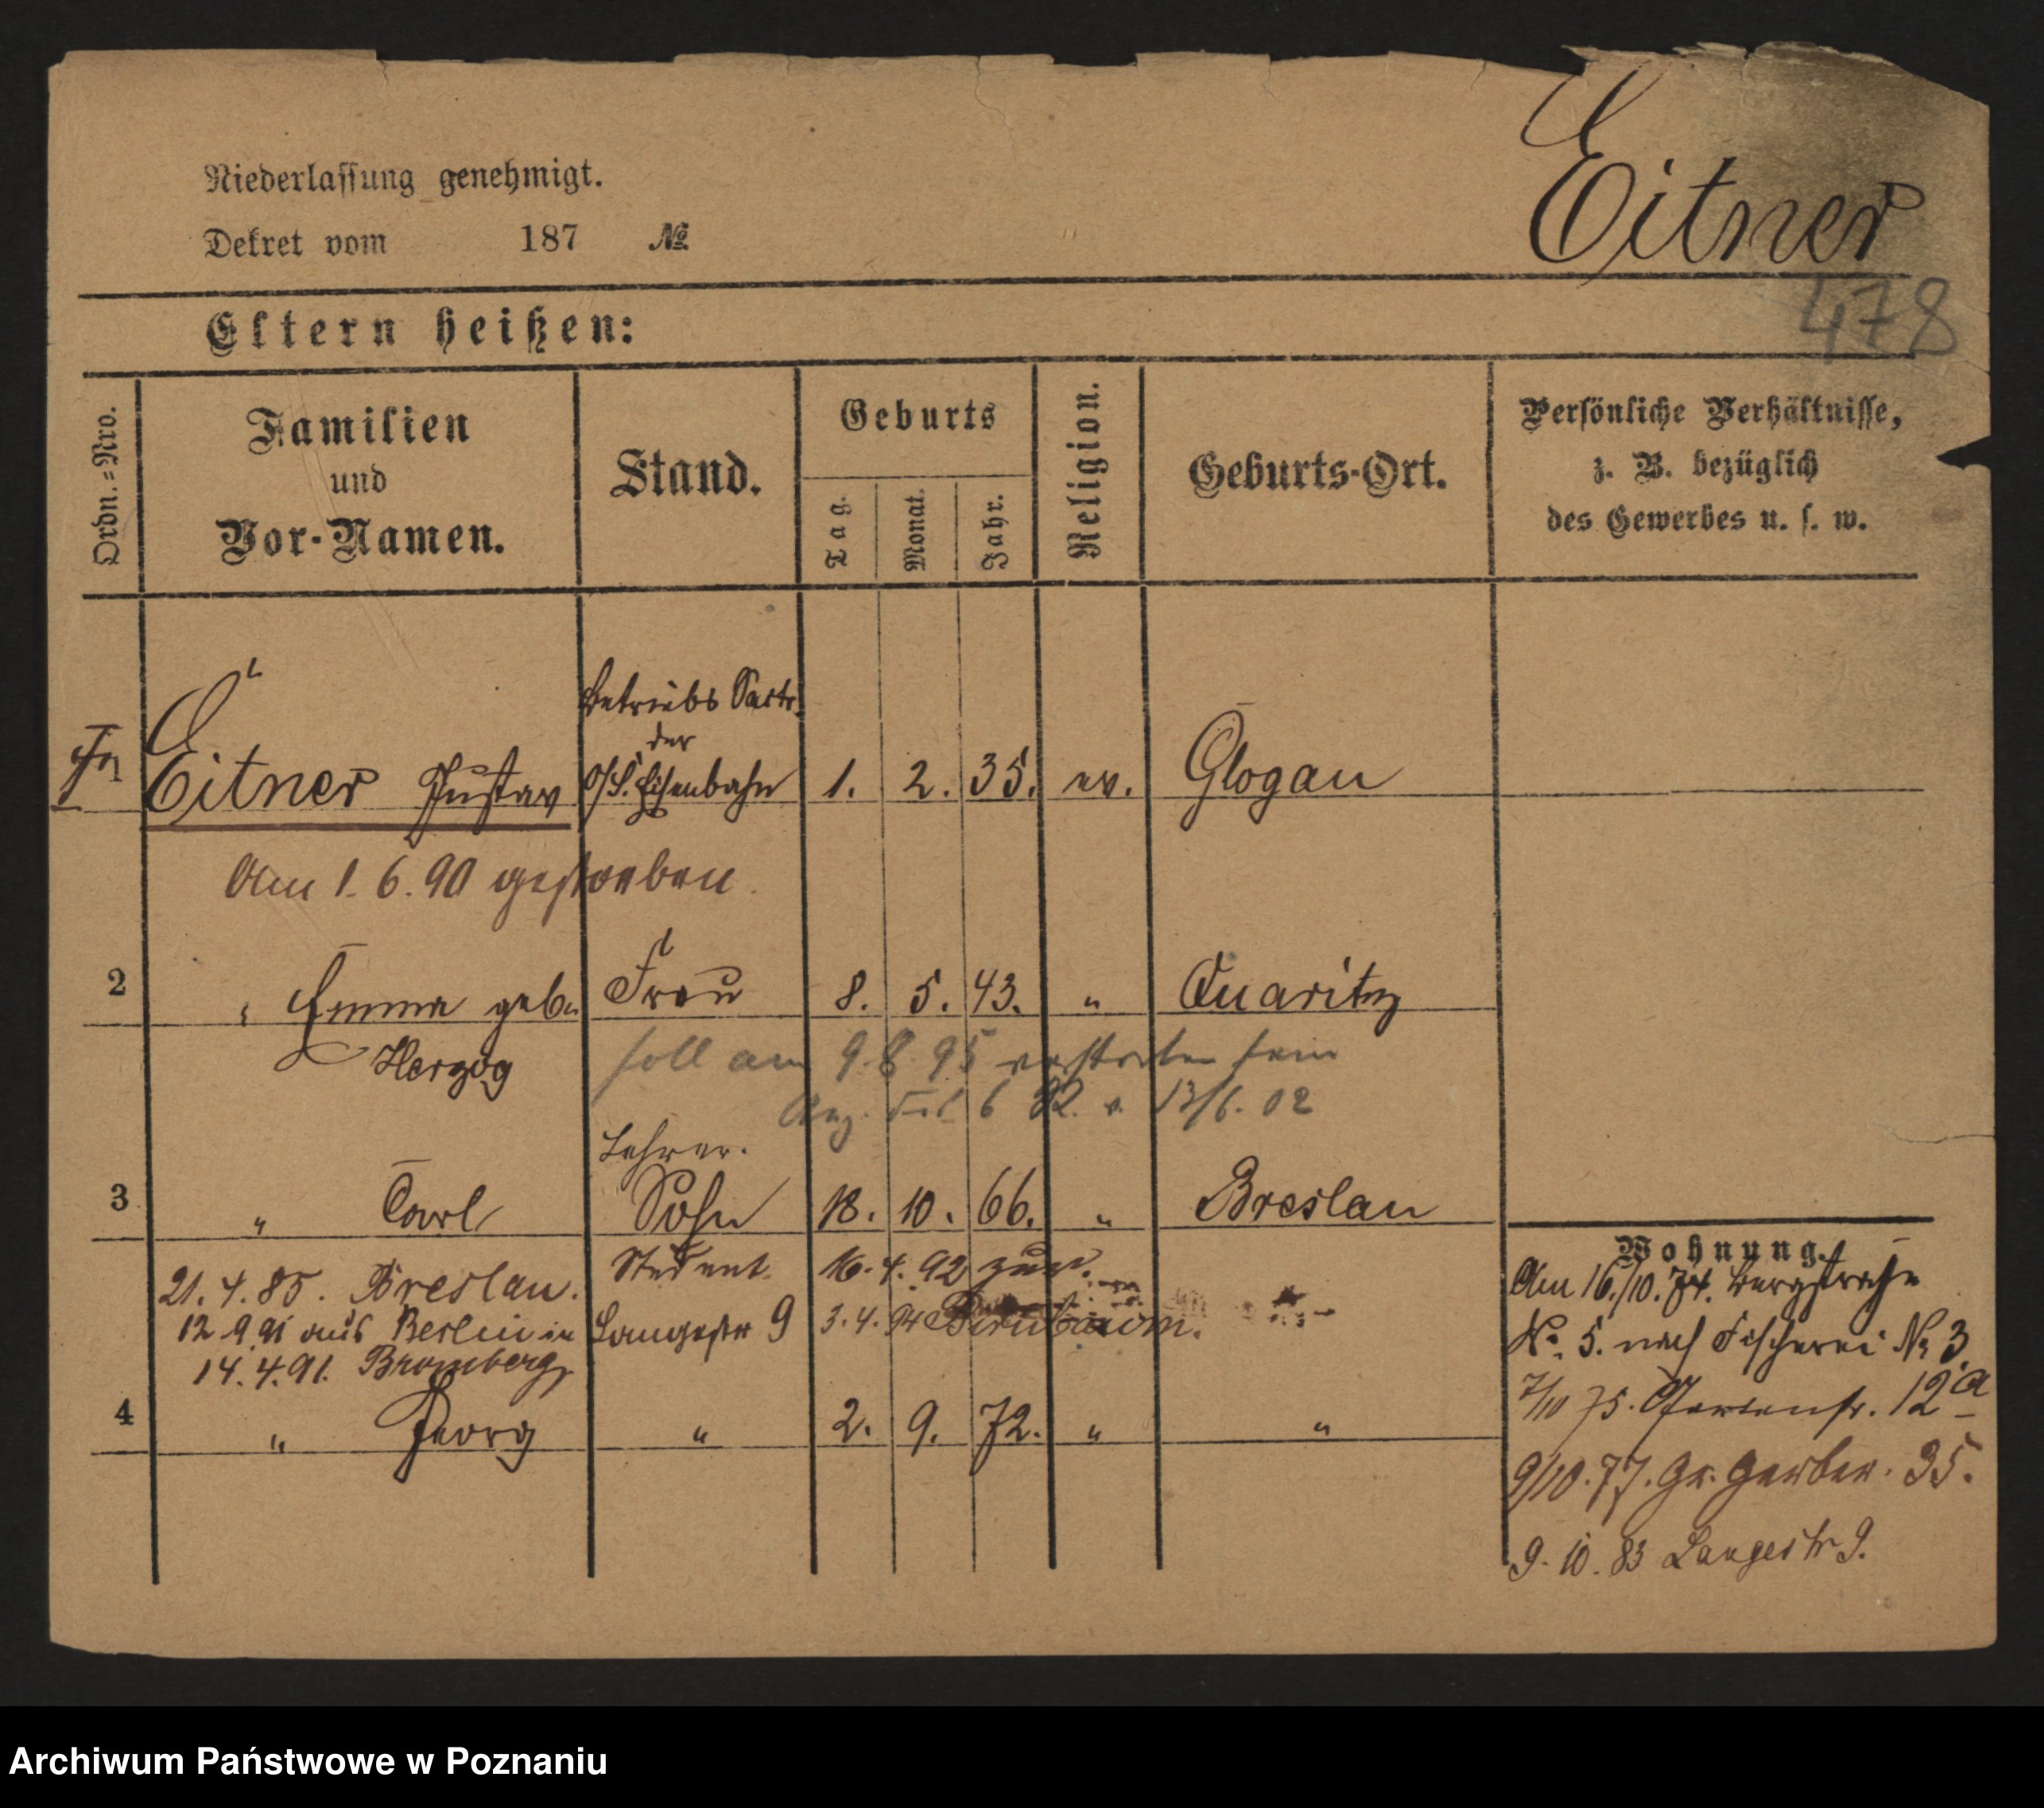 Niederlassung genehmigt.
Dekret vom 187 №
Eitner
478
Eltern heißen:
Ordn.=Nro.
Familien
und
Vor-Namen.
Stand.
Geburts
Tag.
Monat.
Jahr.
Religion.
Geburts-Ort.
Persönliche Verhältnisse,
z. B. bezüglich
des Gewerbes u. s. w.
Betriebs Sectr.
der
1 Eitner Gustav O/S. Eisenbahn 1. 2. 35. ev. Glogau
Am 1. 6. 90 gestorben.
2 " Emma geb. Frau 8. 5. 43. " Quaritz
Herzog
soll am 9. 8. 95 verstorben sein
6 02. v. 13/6. 02
Lehrer.
3 " Carl Sohn 18. 10. 66. " Breslau
21. 4. 85. Breslau. Student 16. 4. 92 zur.
12 9 91 aus Berlin in Langestr 9 3. 4. 94 Birnbaum.
14. 4. 91. Bromberg
4 " Georg " 2. 9. 72. " "
Wohnung.
Am 16./10. 74. Bergstraße
No. 5. nach Fischerei No 3
7/10 75. Gartenstr. 12a
9/10. 77. Gr. Gerber. 35.
9. 10. 83 Langestr 9.
Archiwum Państwowe w Poznaniu